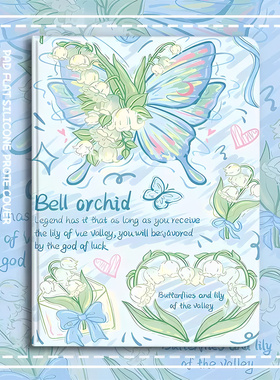 PAD FLAT SILICONE PROTECOVER
Bell orchid
Legend has it that as long as you receive
the lily of vue valley, you will be favored
by the god of luck
Butterflies and lily
of the valley
Butterflies and lily
of the valley